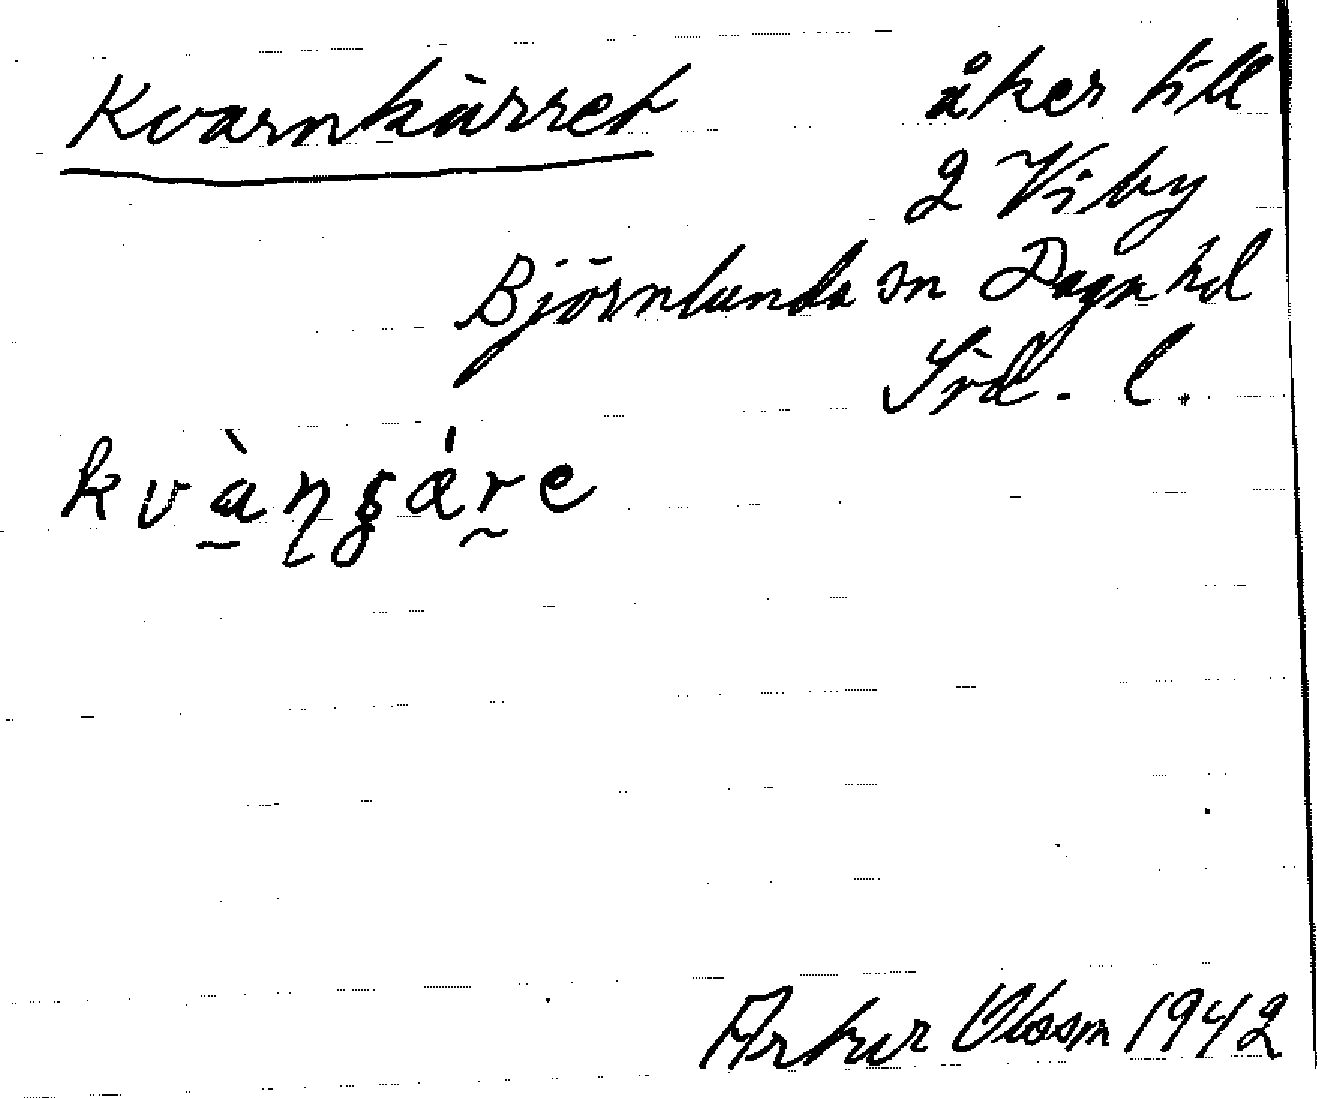 Kvarnkärret åker till
2 Viby
Björnlunda sn Daga hd
Srd. l.
kvàŋgáre
Artur Olsson 1942